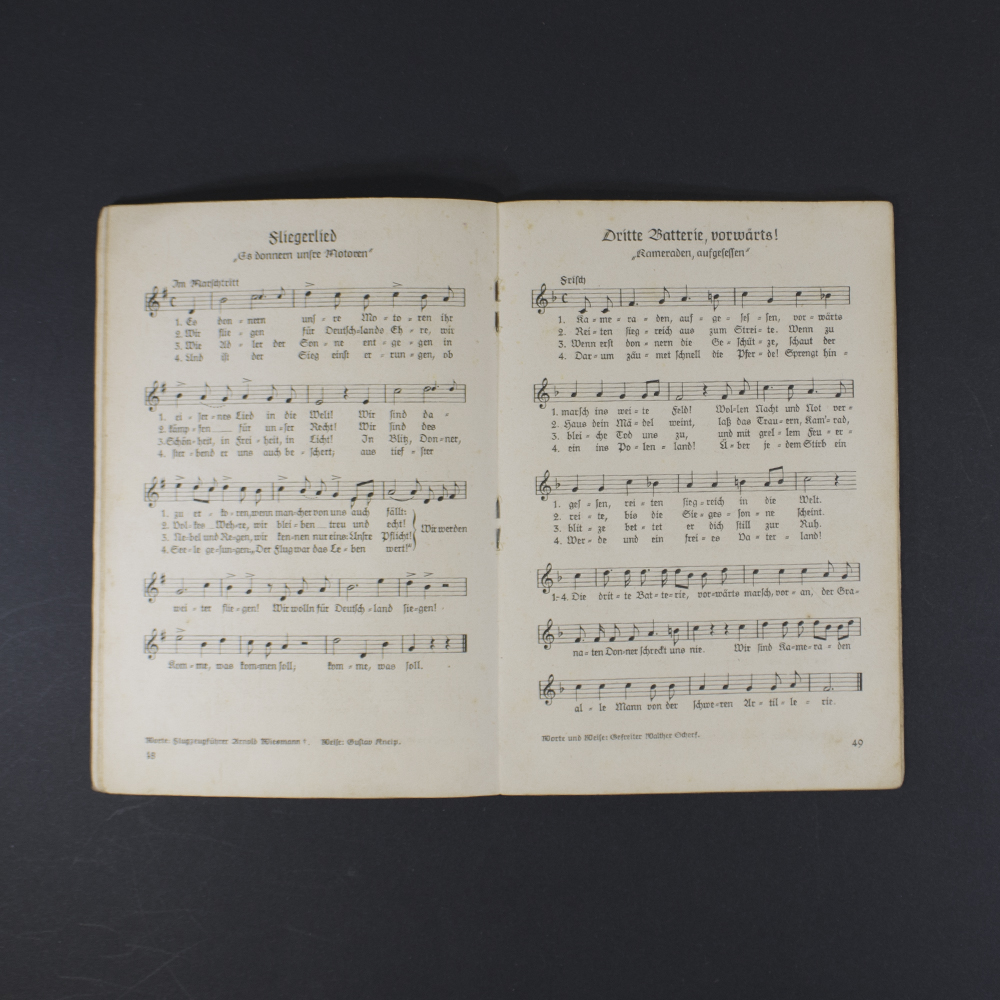 Fliegerlied
„Es donnern unsre Motoren"
Im Marschtritt
1. Es don-nern uns-re Mo-to-ren ihr
2. Wir flie-gen für Deutsch-lands Eh-re, wir
3. Wie Ad-ler der Son-ne ent-ge-gen in
4. Und ist der Sieg einst er-run-gen, ob
1. ei-ser-nes Lied in die Welt! Wir sind da-
2. kämp-fen für un-ser Recht! Wir sind des
3. Schön-heit, in Frei-heit, in Licht! In Blitz, Don-ner,
4. ster-bend er uns auch be-schert; aus tief-ster
1. zu er-ko-ren, wenn man-cher von uns auch fällt:
2. Vol-kes Weh-re, wir blei-ben treu und echt!
3. Ne-bel und Re-gen, wir ken-nen nur eins: Unsre Pflicht!
4. See-le ge-sun-gen: „Der Flug war das Le-ben wert!"
Wir werden
wei-ter flie-gen! Wir wolln für Deutsch-land sie-gen!
Kom-me, was kom-men soll; kom-me, was soll.
Worte: Flugzeugführer Arnold Wiesmann †. Weise: Gustav Kneip.
48
Dritte Batterie, vorwärts!
„Kameraden, aufgesessen"
Frisch
1. Ka-me-ra-den, auf-ge-ses-sen, vor-wärts
2. Rei-ten sieg-reich aus zum Strei-te. Wenn zu
3. Wenn erst don-nern die Ge-schüt-ze, schaut der
4. Dar-um zäu-met schnell die Pfer-de! Sprengt hin-
1. marsch ins wei-te Feld! Wol-len Nacht und Not ver-
2. Haus dein Mä-del weint, laß das Trau-ern, Kam'rad,
3. blei-che Tod uns zu, und mit grel-lem Feu-er-
4. ein ins Po-len-land! Ü-ber je-dem Stirb ein
1. ges-sen, rei-ten sieg-reich in die Welt.
2. rei-te, bis die Sie-ges-son-ne scheint.
3. blit-ze bet-tet er dich still zur Ruh.
4. Wer-de und ein frei-es Va-ter-land!
1.-4. Die drit-te Bat-te-rie, vor-wärts marsch, vor-an, der Gra-
na-ten Don-ner schreckt uns nie. Wir sind Ka-me-ra-den
al-le Mann von der schwe-ren Ar-til-le-rie.
Worte und Weise: Gefreiter Walther Scherf.
49